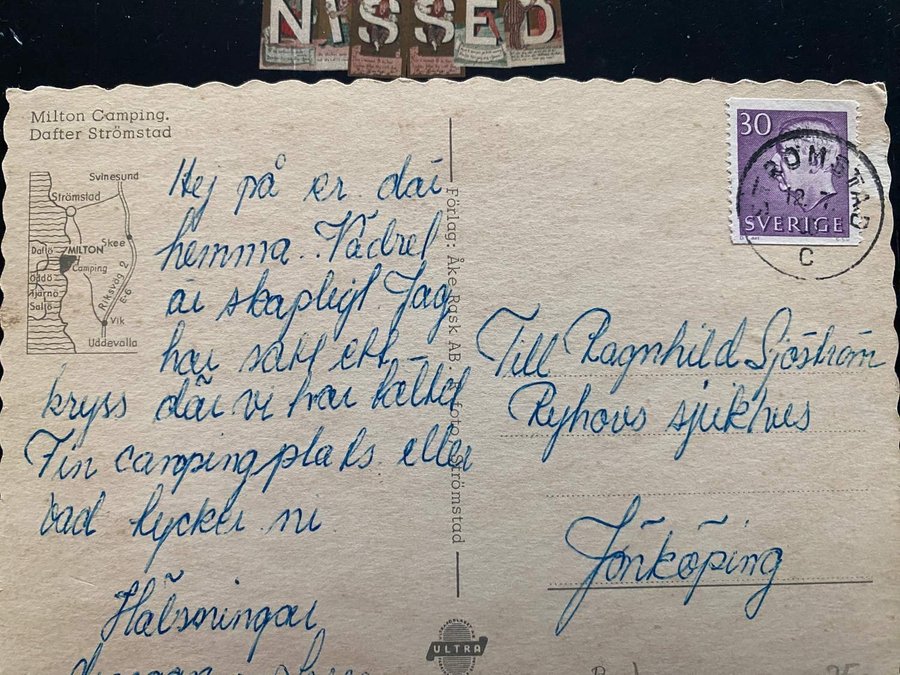 NISSED
Milton Camping.
Dafter Strömstad
Svinesund
Strömstad
Skee
Daftö
MILTON
Camping
Öddö
Tjärnö
Saltö
Riksväg 2
E-6
Vik
Uddevalla
Hej på er där
hemma. Vädret
är skapligt. Jag
har satt ett
kryss där vi har tältet
Fin campingplats eller
vad tycker ni
Hälsningar
Förlag: Åke Rask AB. foto, Strömstad
30
SVERIGE
STRÖMSTAD
12. 7
C
Till Ragnhild Sjöström
Ryhovs sjukhus
Jönköping
ULTRA